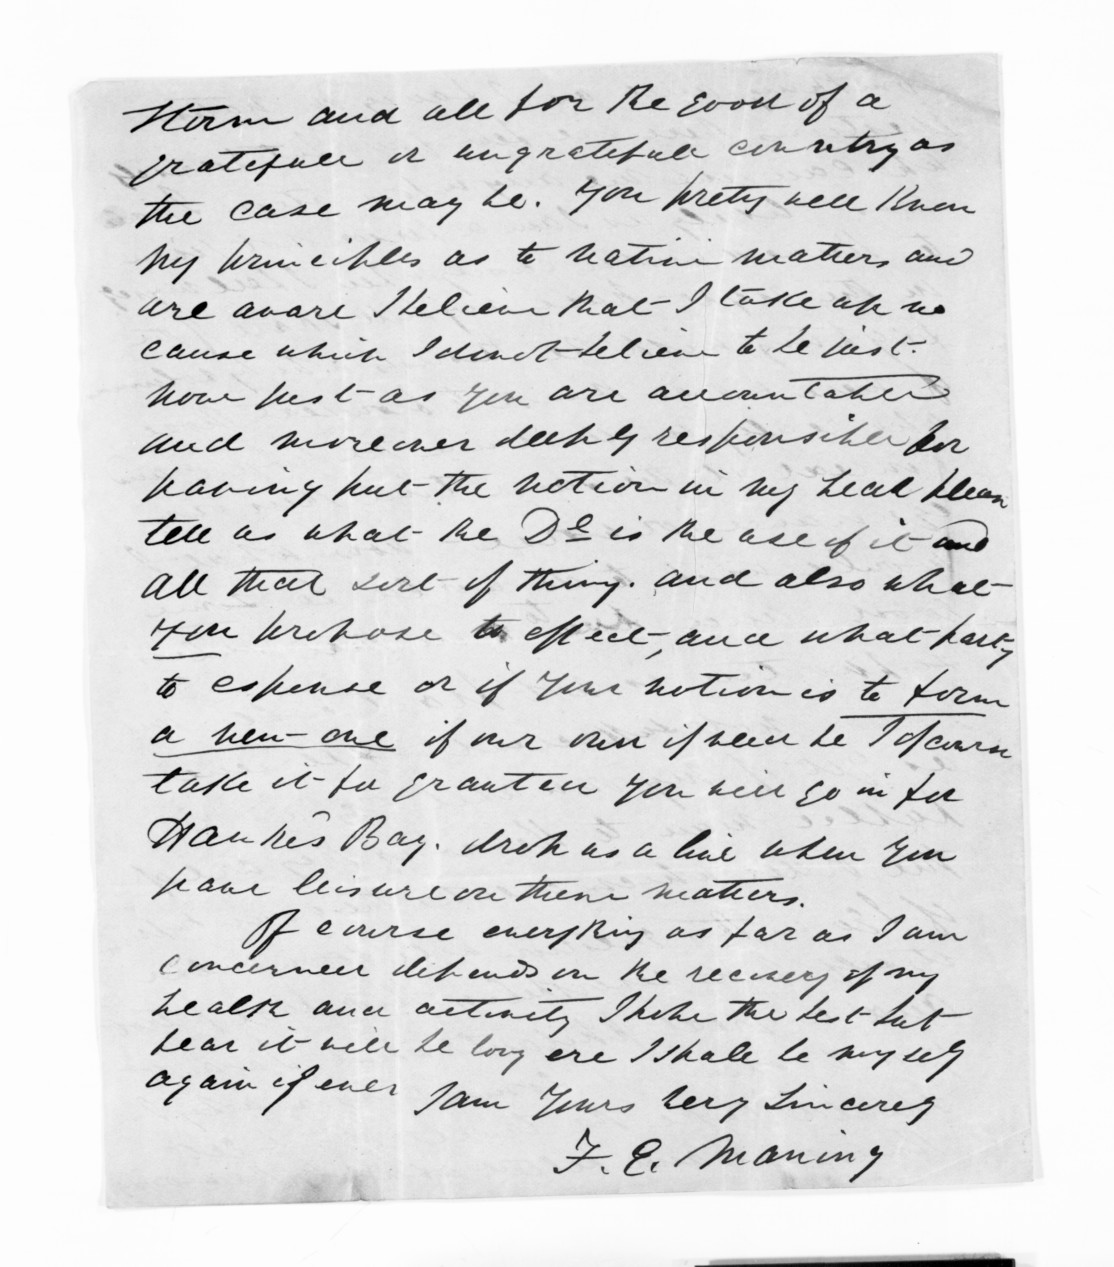 storm and all for the good of a
gratefull or ungratefull country as
the case may be. You pretty well know
my principles as to native matters and
are aware I believe that I take up no
cause which I do not believe to be just.
now just as you are accountable
and moreover deeply responsible for
having put the notion in my head please
tell us what the Dl is the use of it and
all that sort of thing. and also what
you propose to effect, and what party
to espouse or if your notion is to form
a new one if our own if need be I of course
take it for granted you will go in for
Hawkes Bay. drop us a line when you
have leisure on these matters.
Of course everything as far as I am
concerned depends on the recovery of my
health and activity I hope the best but
fear it will be long ere I shall be myself
again if ever
I am Yours very Sincerely
F. E. Maning